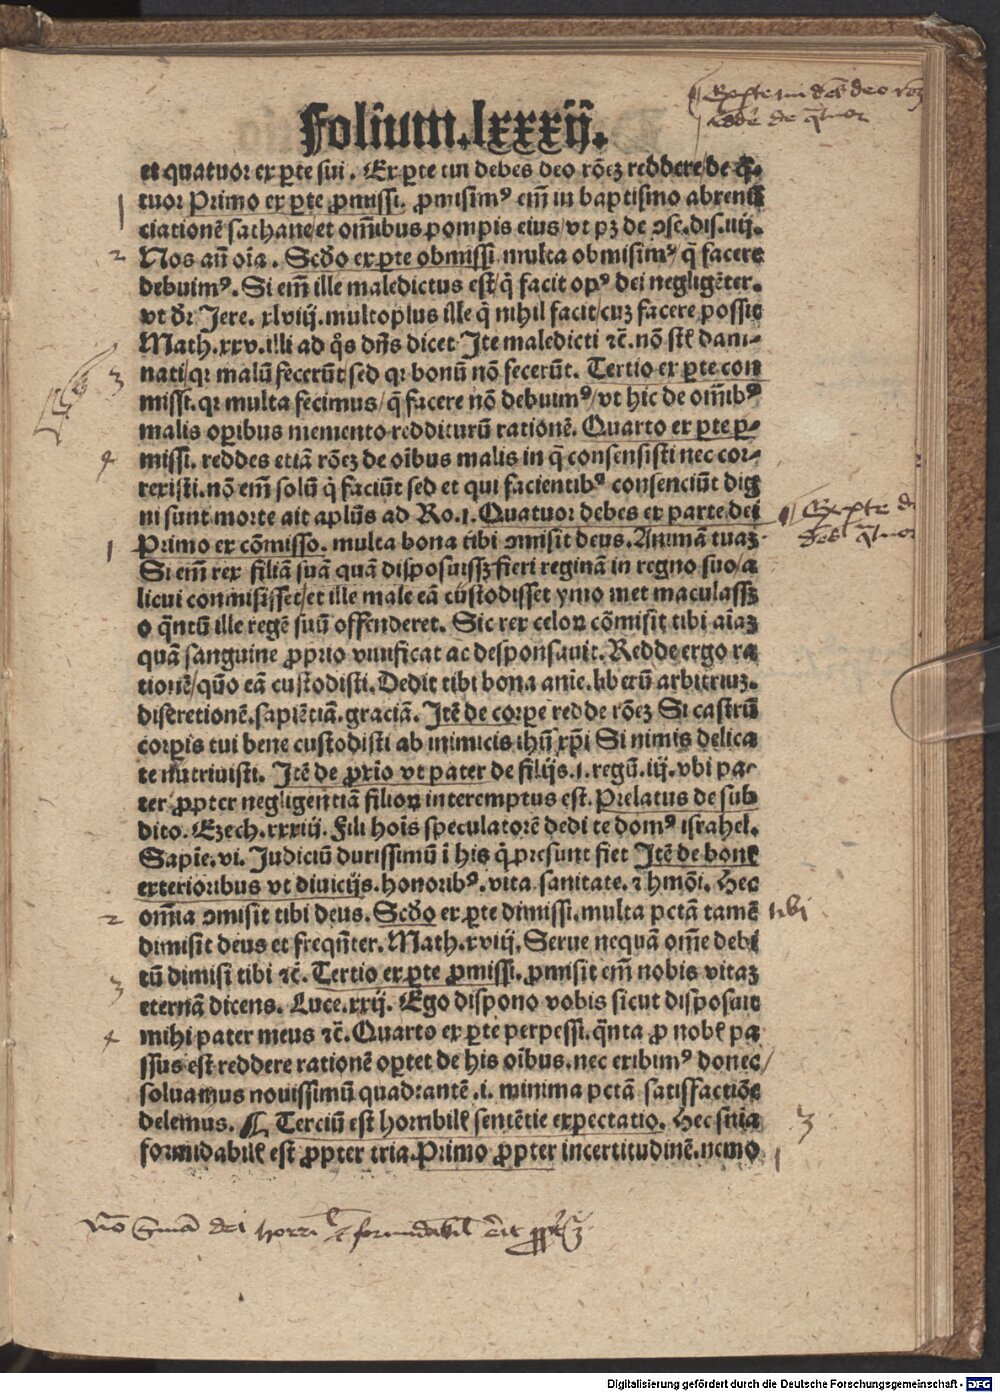 Folium.lxxxij.
et quatuor ex ꝑte sui. Ex ꝑte tui debes deo rōeꝫ reddere/de q̄-
tuor Primo ex ꝑte ꝓmissi. ꝓmisimꝰ em̄ in baptismo abrenū
ciationē sathane/et om̄ibus pompis eius/vt pꝫ de ↄse.dis.iiij.
Nos aūt oīa. Scd̄o ex ꝑte obmissi multa obmisimꝰ q̄ facere
debuimꝰ. Si em̄ ille maledictus est/q̄ facit opꝰ dei negligēter.
vt dr̄ Jere. xlviij.multoplus ille q̄ nihil facit/cuꝫ facere possit
Math.xxv.illi ad q̄s dn̄s dicet Ite maledicti ⁊c̄. nō st̄ dam-
nati/qꝛ malū fecerūt/sed qꝛ bonū nō fecerūt. Tertio ex ꝑte con
missi.qꝛ multa fecimus/q̄ facere nō debuimꝰ/vt hic de om̄ibꝰ
malis oꝑibus memento redditurū rationē. Quarto ex ꝑte ꝑ-
missi. reddes etiā rōeꝫ de oībus malis in q̄ consensisti nec cor-
rexisti.nō em̄ solū q̄ faciūt sed et qui facientibꝰ consenciūt dig
ni sunt morte ait apl̄us ad Ro.i. Quatuor debes ex parte dei
Primo ex cōmisso. multa bona tibi ↄmisit deus. Animā tuaꝫ.
Si em̄ rex filiā suā quā disposuissꝫ fieri reginā in regno suo/a
licui commisisset/et ille male eā custodisset ymo met maculassꝫ
o q̄ntū ille regē suū offenderet. Sic rex celoꝝ cōmisit tibi aīaꝫ
quā sanguine ꝓprio viuificat ac desponsauit. Redde ergo ra
tionē/quō eā custodisti. Dedit tibi bona anīe.liberū arbitriuꝫ.
discretionē.sapiētiā.graciā. Itē de corꝑe redde rōeꝫ Si castrū
corꝑis tui bene custodisti ab inimicis ihū xp̄i Si nimis delica
te nutriuisti. Itē de ꝓxīo vt pater de filijs.i.regū.iij.vbi pa-
ter ꝓpter negligentiā filioꝝ interemptus est. Prelatus de sub
dito. Ezech.xxxiij. Fili hoīs speculatorē dedi te domꝰ israhel.
Sapīe.vi. Judiciū durissimū ī his q̄ presunt fiet Itē de bonꝭ
exterioribus vt diuicijs.honoribꝰ.vita sanitate.⁊ hmōi. Hec
om̄ia ↄmisit tibi deus. Scd̄o ex ꝑte dimissi.multa pctā tamē tibi
dimisit deus et freqn̄ter. Math.xviij. Serue nequā om̄e debi
tū dimisi tibi ⁊c̄. Tertio ex ꝑte ꝓmissi. ꝓmisit em̄ nobis vitaꝫ
eternā dicens. Luce.xxij. Ego dispono vobis sicut disposuit
mihi pater meus ⁊c̄. Quarto ex ꝑte perpessi.q̄nta ꝓ nobꝭ pa
ssus est reddere rationē oꝑtet de his oībus.nec exibimꝰ donec/
soluamus nouissimū quadrantē .i. minima pctā satisfactiōe
delemus. ¶ Terciū est horribilꝭ sentētie expectatio. Hec snīa
formidabilꝭ est ꝓpter tria. Primo ꝓpter incertitudinē.nemo
Digitalisierung gefördert durch die Deutsche Forschungsgemeinschaft - DFG